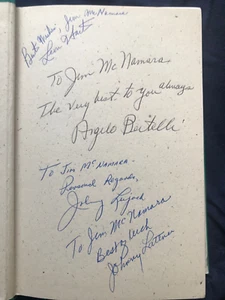 Best Wishes, Jim McNamara
Leon Hart
To Jim McNamara
The very best to you always
Angelo Bertelli
To Jim McNamara
Personal Regards,
Johnny Lujack
To Jim McNamara
Best of luck
Johnny Lattner